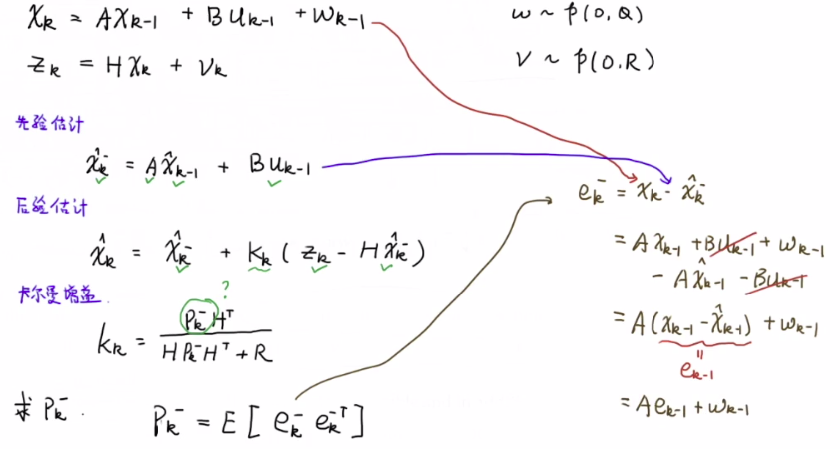 x_k = Ax_{k-1} + Bu_{k-1} + w_{k-1}
w ~ p(0,Q)
z_k = Hx_k + v_k
v ~ p(0.R)
先验估计
x̂_k^- = Ax̂_{k-1} + Bu_{k-1}
后验估计
x̂_k = x̂_k^- + K_k ( z_k - Hx̂_k^- )
卡尔曼增益.
?
K_k = \frac{P_k^- H^T}{HP_k^- H^T + R}
求 P_k^- .
P_k^- = E [ e_k^- e_k^{-T} ]
e_k^- = x_k - x̂_k^-
= Ax_{k-1} + Bu_{k-1} + w_{k-1}
- Ax̂_{k-1} - Bu_{k-1}
= A(x_{k-1} - x̂_{k-1}) + w_{k-1}
=
e_{k-1}
= Ae_{k-1} + w_{k-1}